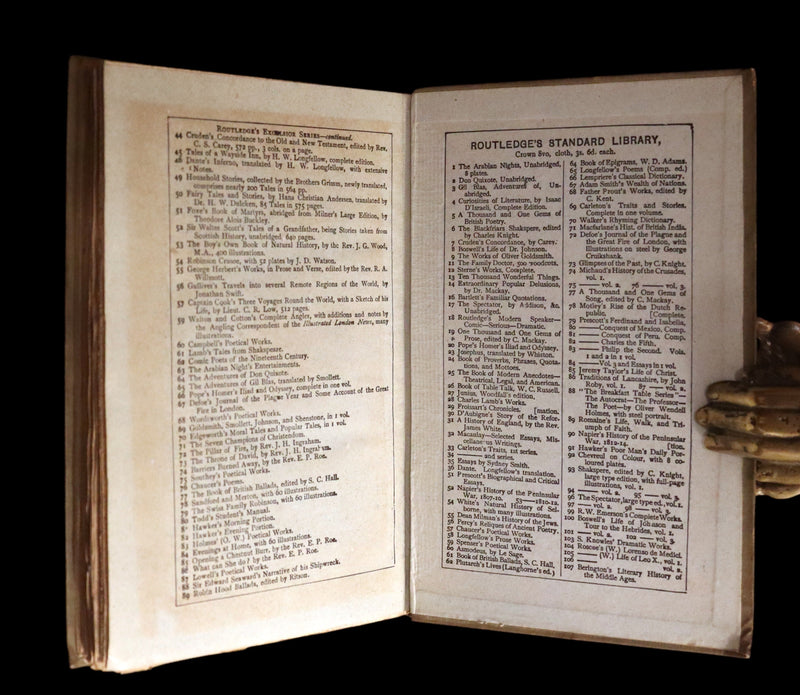 ROUTLEDGE'S EXCELSIOR SERIES—continued.
44 Cruden's Concordance to the Old and New Testament, edited by Rev.
C. S. Carey, 572 pp., 3 cols. on a page.
45 Tales of a Wayside Inn, by H. W. Longfellow, complete edition.
48 Dante's Inferno, translated by H. W. Longfellow, with extensive
Notes.
49 Household Stories, collected by the Brothers Grimm, newly translated,
comprises nearly 200 Tales in 564 pp.
50 Fairy Tales and Stories, by Hans Christian Andersen, translated by
Dr. H. W. Dulcken, 85 Tales in 575 pages.
51 Foxe's Book of Martyrs, abridged from Milner's Large Edition, by
Theodore Alois Buckley.
52 Sir Walter Scott's Tales of a Grandfather, being Stories taken from
Scottish History, unabridged, 640 pages.
53 The Boy's Own Book of Natural History, by the Rev. J. G. Wood,
M.A., 400 illustrations.
54 Robinson Crusoe, with 52 plates by J. D. Watson.
55 George Herbert's Works, in Prose and Verse, edited by the Rev. R. A.
Willmott.
56 Gulliver's Travels into several Remote Regions of the World, by
Jonathan Swift.
57 Captain Cook's Three Voyages Round the World, with a Sketch of his
Life, by Lieut. C. R. Low, 512 pages.
59 Walton and Cotton's Complete Angler, with additions and notes by
the Angling Correspondent of the Illustrated London News, many
illustrations.
60 Campbell's Poetical Works.
61 Lamb's Tales from Shakspeare.
62 Comic Poets of the Nineteenth Century.
63 The Arabian Night's Entertainments.
64 The Adventures of Don Quixote.
65 The Adventures of Gil Blas, translated by Smollett.
66 Pope's Homer's Iliad and Odyssey, complete in one vol.
67 Defoe's Journal of the Plague Year and Some Account of the Great
Fire in London.
68 Wordsworth's Poetical Works.
69 Goldsmith, Smollett, Johnson, and Shenstone, in 1 vol.
70 Edgeworth's Moral Tales and Popular Tales, in 1 vol.
71 The Seven Champions of Christendom.
72 The Pillar of Fire, by Rev. J. H. Ingraham.
73 The Throne of David, by Rev. J. H. Ingraham.
74 Barriers Burned Away, by the Rev. E. P. Roe.
75 Southey's Poetical Works.
76 Chaucer's Poems.
77 The Book of British Ballads, edited by S. C. Hall.
78 Sandford and Merton, with 60 illustrations.
79 The Swiss Family Robinson, with 60 illustrations.
80 Todd's Student's Manual.
81 Hawker's Morning Portion.
82 Hawker's Evening Portion.
83 Holmes' (O. W.) Poetical Works.
84 Evenings at Home, with 60 illustrations.
85 Opening a Chestnut Burr, by the Rev. E. P. Roe.
86 What can She do? by the Rev. E. P. Roe.
87 Lowell's Poetical Works.
88 Sir Edward Seaward's Narrative of his Shipwreck.
89 Robin Hood Ballads, edited by Ritson.
ROUTLEDGE'S STANDARD LIBRARY,
Crown 8vo, cloth, 3s. 6d. each.
1 The Arabian Nights, Unabridged,
8 plates.
2 Don Quixote, Unabridged.
3 Gil Blas, Adventures of, Un-
abridged.
4 Curiosities of Literature, by Isaac
D'Israeli, Complete Edition.
5 A Thousand and One Gems of
British Poetry.
6 The Blackfriars Shakspere, edited
by Charles Knight.
7 Cruden's Concordance, by Carey.
8 Boswell's Life of Dr. Johnson.
9 The Works of Oliver Goldsmith.
11 The Family Doctor, 500 woodcuts.
12 Sterne's Works, Complete.
13 Ten Thousand Wonderful Things.
14 Extraordinary Popular Delusions,
by Dr. Mackay.
16 Bartlett's Familiar Quotations.
17 The Spectator, by Addison, &c.
Unabridged.
18 Routledge's Modern Speaker—
Comic—Serious—Dramatic.
19 One Thousand and One Gems of
Prose, edited by C. Mackay.
20 Pope's Homer's Iliad and Odyssey.
23 Josephus, translated by Whiston.
24 Book of Proverbs, Phrases, Quota-
tions, and Mottoes.
25 The Book of Modern Anecdotes—
Theatrical, Legal, and American.
26 Book of Table Talk, W. C. Russell.
27 Junius, Woodfall's edition.
28 Charles Lamb's Works.
29 Froissart's Chronicles. [mation.
30 D'Aubigne's Story of the Refor-
31 A History of England, by the Rev.
James White.
32 Macaulay—Selected Essays, Mis-
cellaneous Writings.
33 Carleton's Traits, 1st series.
34 —— and series.
35 Essays by Sydney Smith.
36 Dante. Longfellow's translation.
51 Prescott's Biographical and Critical
Essays.
52 Napier's History of the Peninsular
War, 1807-10. 53—1810-12.
54 White's Natural History of Sel-
borne, with many illustrations.
55 Dean Milman's History of the Jews.
56 Percy's Reliques of Ancient Poetry.
57 Chaucer's Poetical Works.
58 Longfellow's Prose Works.
59 Spenser's Poetical Works.
60 Asmodeus, by Le Sage.
61 Book of British Ballads, S. C. Hall.
62 Plutarch's Lives (Langhorne's ed.)
64 Book of Epigrams, W. D. Adams.
65 Longfellow's Poems (Comp. ed.)
66 Lempriere's Classical Dictionary.
67 Adam Smith's Wealth of Nations.
68 Father Prout's Works, edited by
C. Kent.
69 Carleton's Traits and Stories.
Complete in one volume.
70 Walker's Rhyming Dictionary.
71 Macfarlane's Hist. of British India.
72 Defoe's Journal of the Plague and
the Great Fire of London, with
illustrations on steel by George
Cruikshank.
73 Glimpses of the Past, by C. Knight.
74 Michaud's History of the Crusades,
vol. 1.
75 —— vol. 2. 76 —— vol. 3.
77 A Thousand and One Gems of
Song, edited by C. Mackay.
78 Motley's Rise of the Dutch Re-
public. [Complete.
79 Prescott's Ferdinand and Isabella,
80 —— Conquest of Mexico, Comp.
81 —— Conquest of Peru. Comp.
82 —— Charles the Fifth.
83 —— Philip the Second. Vols.
1 and 2 in 1 vol.
84 ——Vol. 3 and Essays in 1 vol.
85 Jeremy Taylor's Life of Christ.
86 Traditions of Lancashire, by John
Roby, vol. 1. 87 —— vol. 2.
88 "The Breakfast Table Series"—
The Autocrat—The Professor—
The Poet—by Oliver Wendell
Holmes, with steel portrait.
89 Romaine's Life, Walk, and Tri-
umph of Faith.
90 Napier's History of the Peninsular
War, 1812-14. [tion.
91 Hawker's Poor Man's Daily Por-
92 Chevreul on Colour, with 8 co-
loured plates.
93 Shakspere, edited by C. Knight,
large type edition, with full-page
illustrations, vol. 1.
94 —— vol. 2. 95 —— vol. 3.
96 The Spectator, large type ed., vol. 1.
97 —— vol. 2. 98 —— vol. 3.
99 R. W. Emerson's Complete Works.
100 Boswell's Life of Johnson and
Tour to the Hebrides, vol. 1.
101 —— vol. 2. 102 —— vol. 3.
103 S. Knowles' Dramatic Works.
104 Roscoe's (W.) Lorenzo de Medici.
105 —— (W.) Life of Leo X., vol. 1.
106 —— vol. 2.
107 Berington's Literary History of
the Middle Ages.